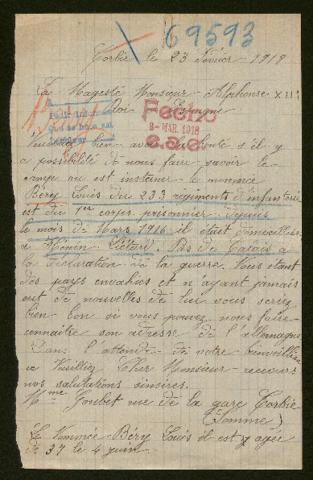 69593
Corbie le 23 Février 1918
Sa Magesté Monsieur Alphonse XIII
Roi Espagne
Fecho
2-MAR. 1918
bien avoir bonté s'il y
a possibilité de nous faire savoir le
camp ou est interner le nommer
Béry Louis du 233 régiments d'infanterie
est du 1er corps prisonnier depuis
le mois de Mars 1916 il était
a Hénin Liétard Pas de Calais a
la déclaration de la guerre. Vous étant
des pays envahies et n'ayant jamais
eut de nouvelles de lui vous serez
bien bon si vous pouvez nous faire
connaitre son adresse de l'allemagne
Dans l'attende de votre bienveillance
Veuilliez Cher Monsieur recevoir
nos salutations sincères.
Mme Goubet rue de la gare Corbie
(Somme)
Le Nommée Béry Louis il est agée
de 37 le 4 juin